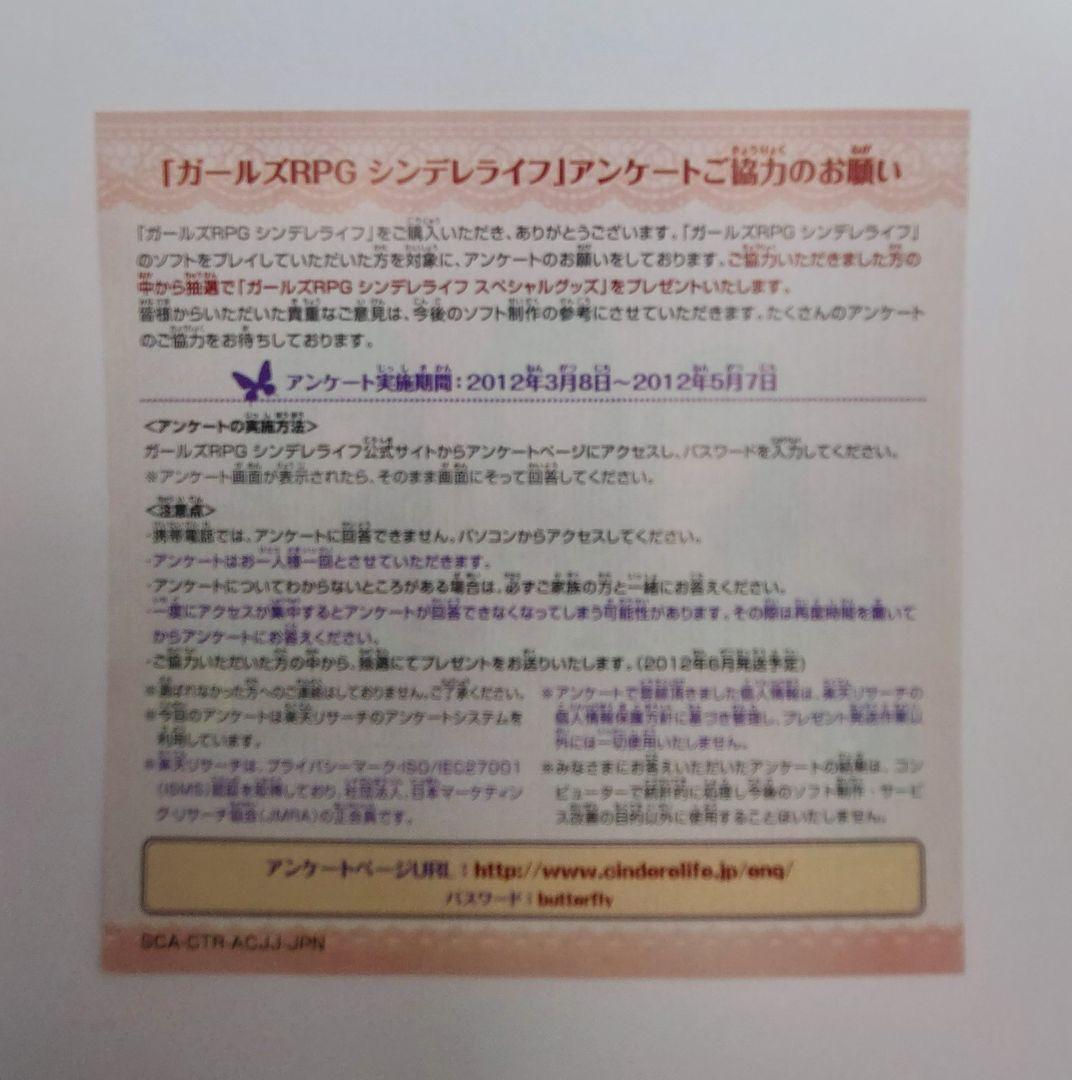 「ガールズRPG シンデレライフ」アンケートご協力のお願い
『ガールズRPG シンデレライフ』をご購入いただき、ありがとうございます。『ガールズRPG シンデレライフ』
のソフトをプレイしていただいた方を対象に、アンケートのお願いをしております。ご協力いただきました方の
中から抽選で「ガールズRPG シンデレライフ スペシャルグッズ」をプレゼントいたします。
皆様からいただいた貴重なご意見は、今後のソフト制作の参考にさせていただきます。たくさんのアンケート
のご協力をお待ちしております。
アンケート実施期間：2012年3月8日～2012年5月7日
＜アンケートの実施方法＞
ガールズRPG シンデレライフ公式サイトからアンケートページにアクセスし、パスワードを入力してください。
※アンケート画面が表示されたら、そのまま画面にそって回答してください。
＜注意点＞
・携帯電話では、アンケートに回答できません。パソコンからアクセスしてください。
・アンケートはお一人様一回とさせていただきます。
・アンケートについてわからないところがある場合は、必ずご家族の方と一緒にお答えください。
・一度にアクセスが集中するとアンケートが回答できなくなってしまう可能性があります。その際は再度時間を置いて
からアンケートにお答えください。
・ご協力いただいた方の中から、抽選にてプレゼントをお送りいたします。（2012年6月発送予定）
※選ばれなかった方へのご連絡はしておりません。ご了承ください。
※今回のアンケートは楽天リサーチのアンケートシステムを
利用しています。
※楽天リサーチは、プライバシーマーク・ISO/IEC27001
（ISMS）認証を取得しており、社団法人、日本マーケティン
グ・リサーチ協会（JMRA）の正会員です。
※アンケートで登録頂きました個人情報は、楽天リサーチの
個人情報保護方針に基づき管理し、プレゼント発送作業以
外には一切使用いたしません。
※みなさまにお答えいただいたアンケートの結果は、コン
ピューターで統計的に処理し今後のソフト制作・サービ
ス改善の目的以外に使用することはいたしません。
アンケートページURL：http://www.cinderelife.jp/enq/
パスワード：butterfly
SCA-CTR-ACJJ-JPN